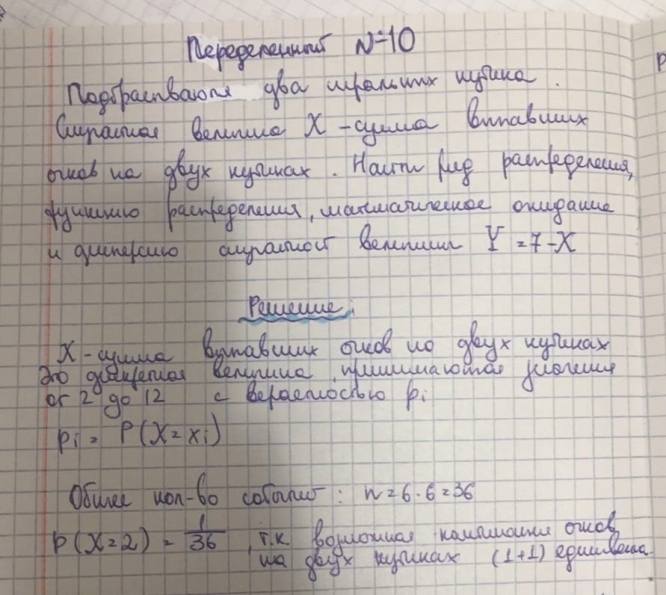 Переделанный №10
Подбрасываются два игральных кубика.
Случайная величина X - сумма выпавших
очков на двух кубиках. Найти ряд распределения,
функцию распределения, математическое ожидание
и дисперсию случайной величины Y = 7 - X
Решение:
X - сумма выпавших очков на двух кубиках
Это дискретная величина, принимаются значения
от 2 до 12 с вероятностью pi
pi = P(X = xi)
Общее кол-во событий: n = 6 · 6 = 36
P(X = 2) = 1/36, т.к возможная комбинация очков
на двух кубиках (1+1) единственна